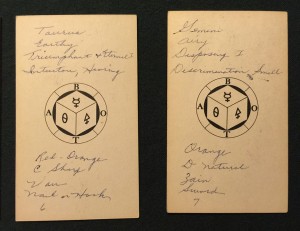 Taurus
Earthy
Triumphant & Eternal
Intuition, Hearing
B
A O
T
Red-Orange
C Sharp
Vau
Nail or Hook
6
Gemini
Airy
Disposing I
Discrimination, Smell
B
A O
T
Orange
D Natural
Zain
Sword
7